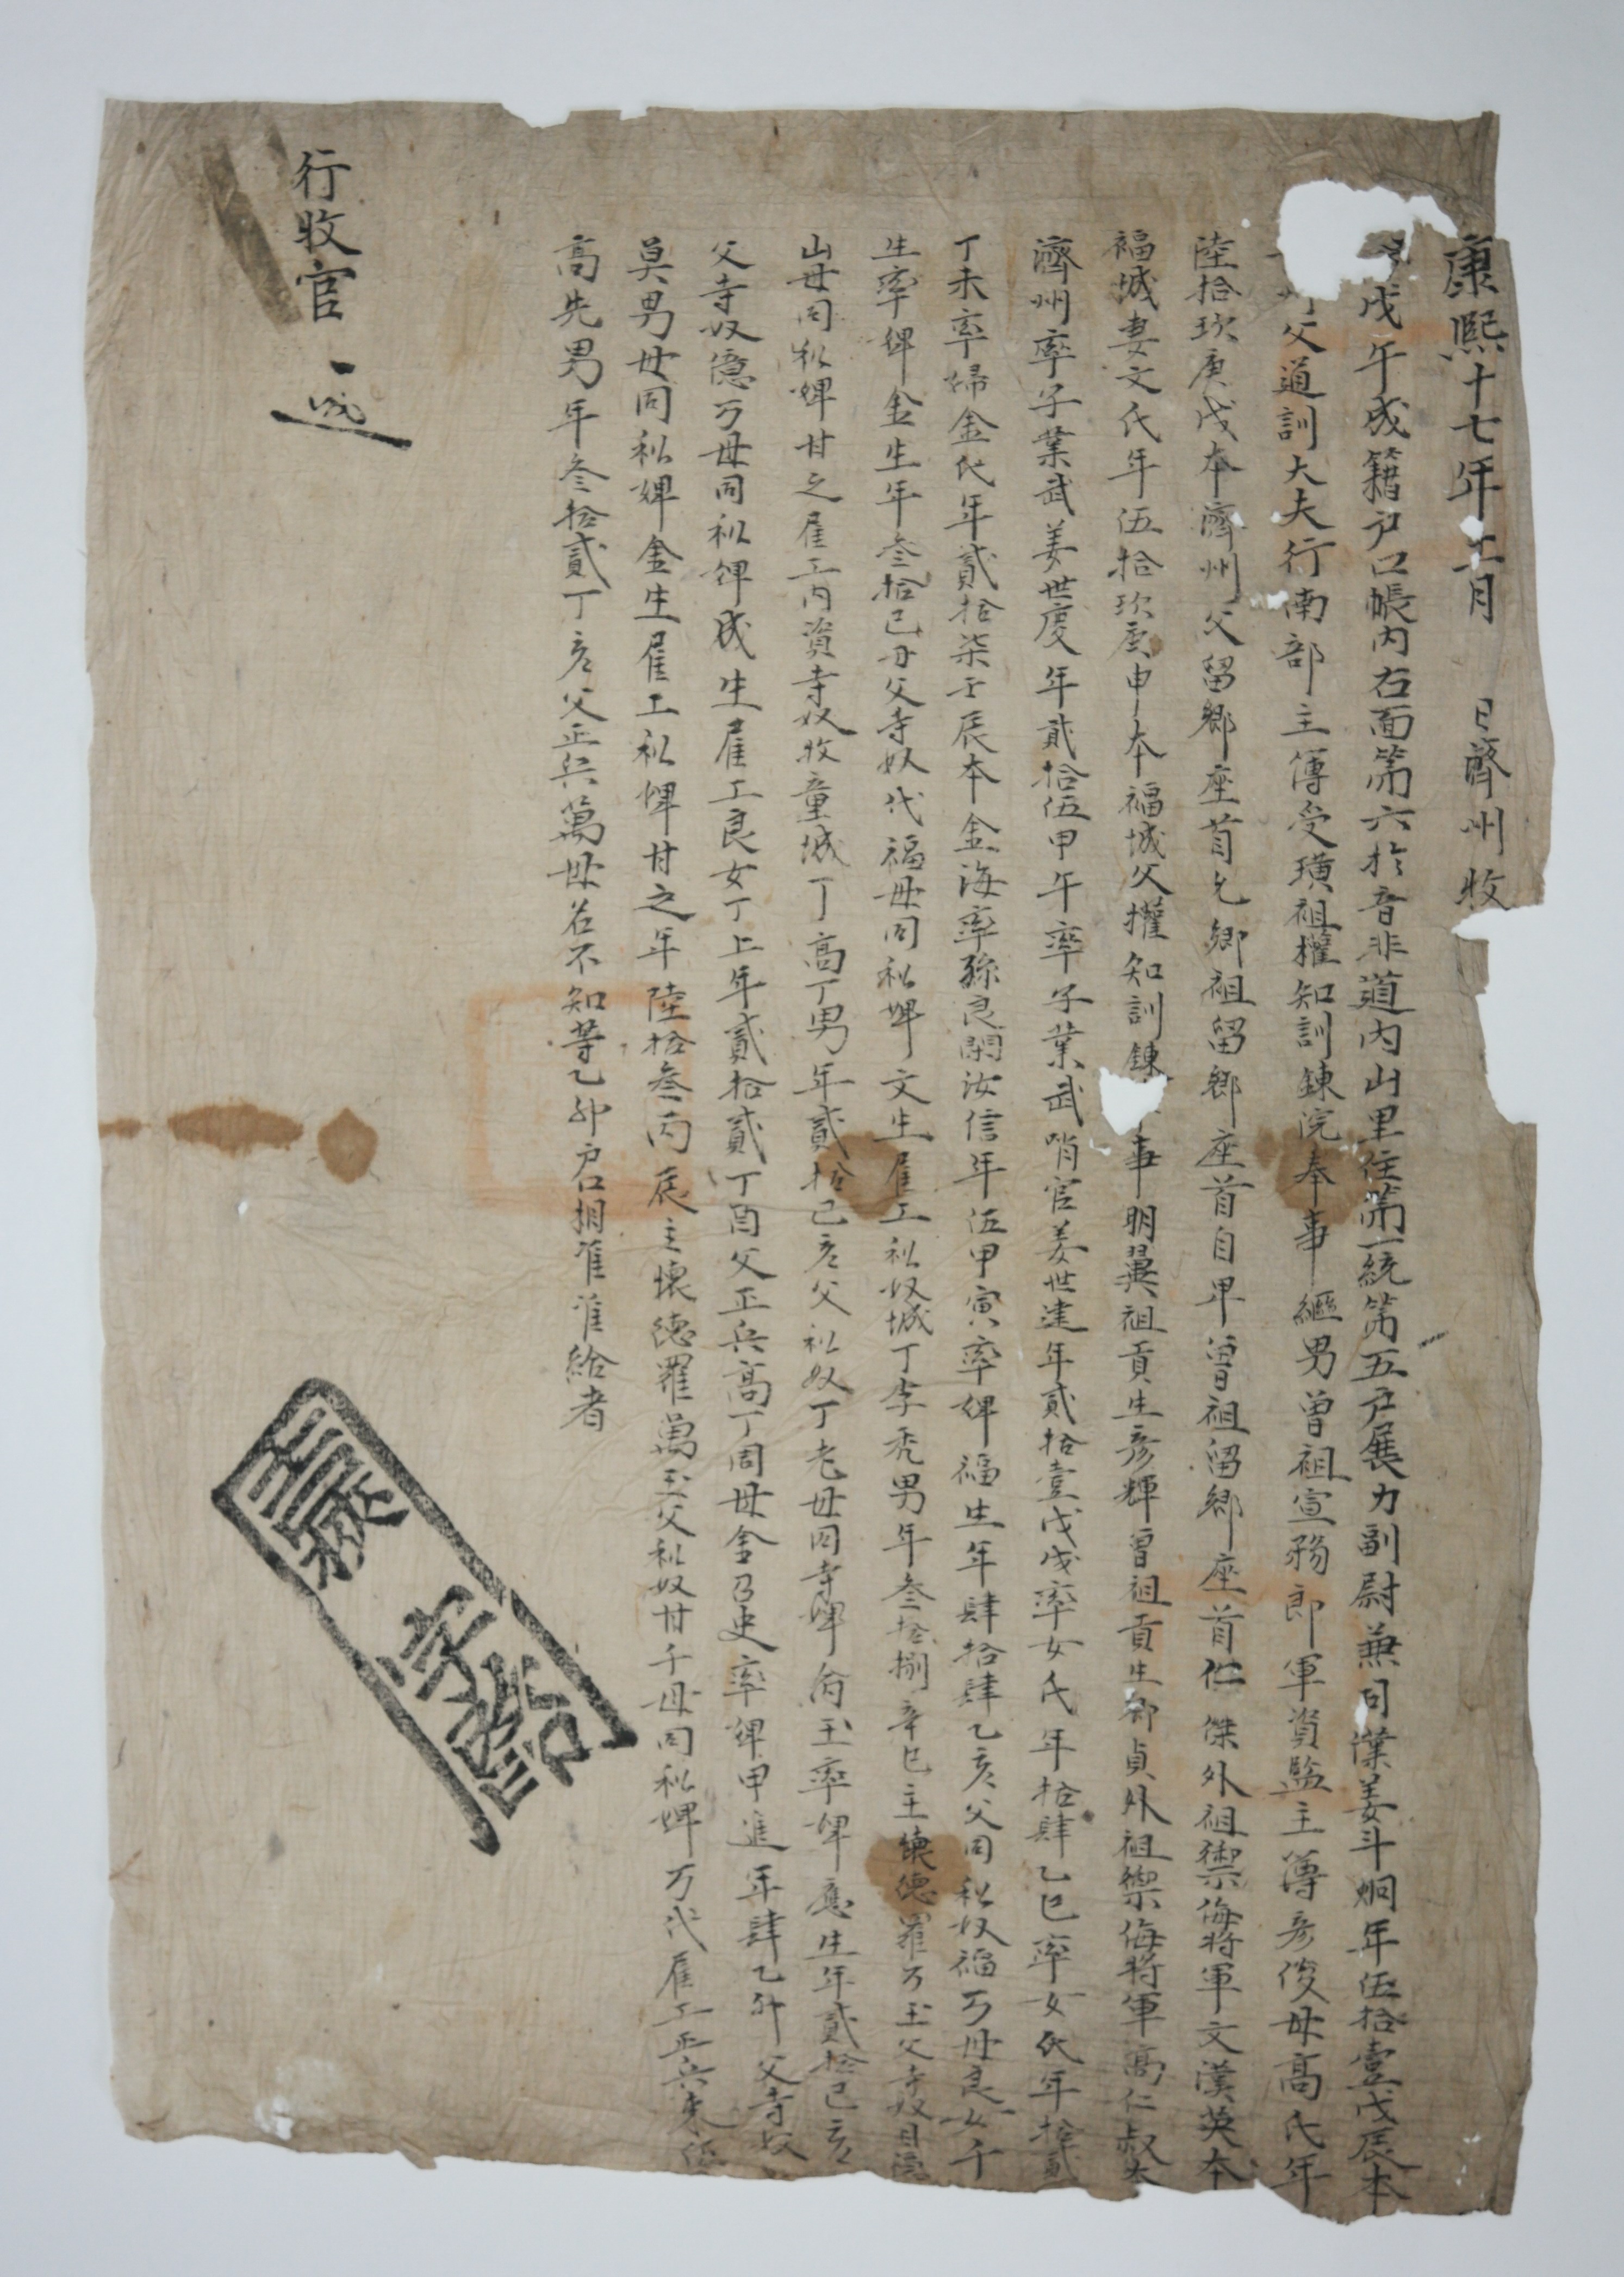 康熙十七年十二月　日濟州牧
戊午成籍戶口帳內右面第六於音非道內山里住第一統第五戶展力副尉兼司僕姜斗烱年伍拾壹戊辰本
州父通訓大夫行南部主傅受璜祖權知訓鍊院奉事繼男曾祖宣務郎軍資監主簿彦俊母高氏年
陸拾玖庚戌本濟州父留鄕座首允鄕祖留鄕座首自卑曾祖留鄕座首仁傑外祖禦侮將軍文漢英本
福城妻文氏年伍拾玖庚申本福城父權知訓鍊事明翼祖貢生彦輝曾祖貢生鄕貞外祖禦侮將軍高仁叔本
濟州率子業武姜世慶年貳拾伍甲午率子業武哨官姜世建年貳拾壹戊戌率女氏年拾肆乙巳率女氏年拾貳
丁未率婦金氏年貳拾柒壬辰本金海率孫良閑汝信年伍甲寅率婢福生年肆拾肆乙亥父同私奴福万母良女千
生率婢金生年叁拾己丑父寺奴代福母同私婢文生雇工私奴城丁李禿男年叁拾捌辛巳主懷德羅万玉父寺奴目
山母同私婢甘之雇工內資寺奴牧童城丁高丁男年貳拾己亥父私奴丁老母同寺婢尙玉率婢應生年貳拾己亥
父寺奴億万母同私婢成生雇工良女丁上年貳拾貳丁酉父正兵高丁周母金召史率婢甲進年肆乙卯父寺奴
莫男母同私婢金生雇工私婢甘之年陸拾叁丙辰主懷德羅萬玉父私奴甘千母同私婢万代雇工正兵
高先男年叁拾貳丁亥父正兵萬母名不知等乙卯戶口相准准給者
行牧官